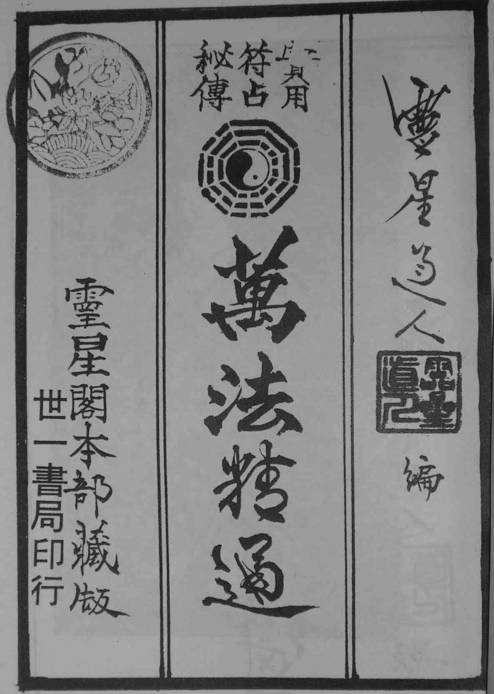 靈星道人 編
用
符占
秘傳
萬法精通
靈星閣本部藏版
世一書局印行